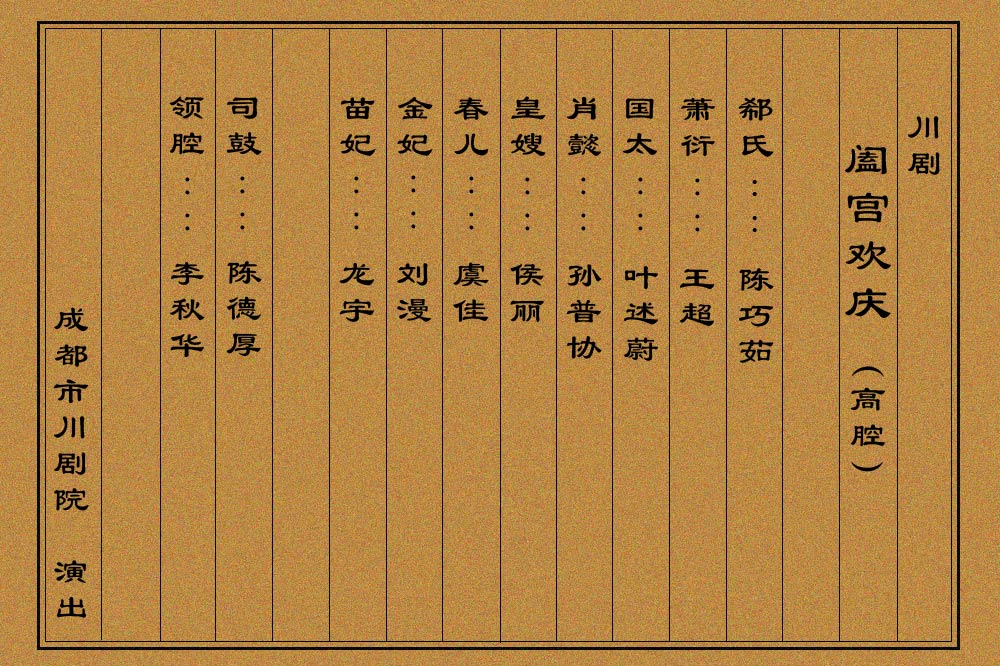 川剧
阖宫欢庆（高腔）
郗氏……陈巧茹
萧衍……王超
国太……叶述蔚
肖懿……孙普协
皇嫂……侯丽
春儿……虞佳
金妃……刘漫
苗妃……龙宇
司鼓……陈德厚
领腔……李秋华
成都市川剧院 演出